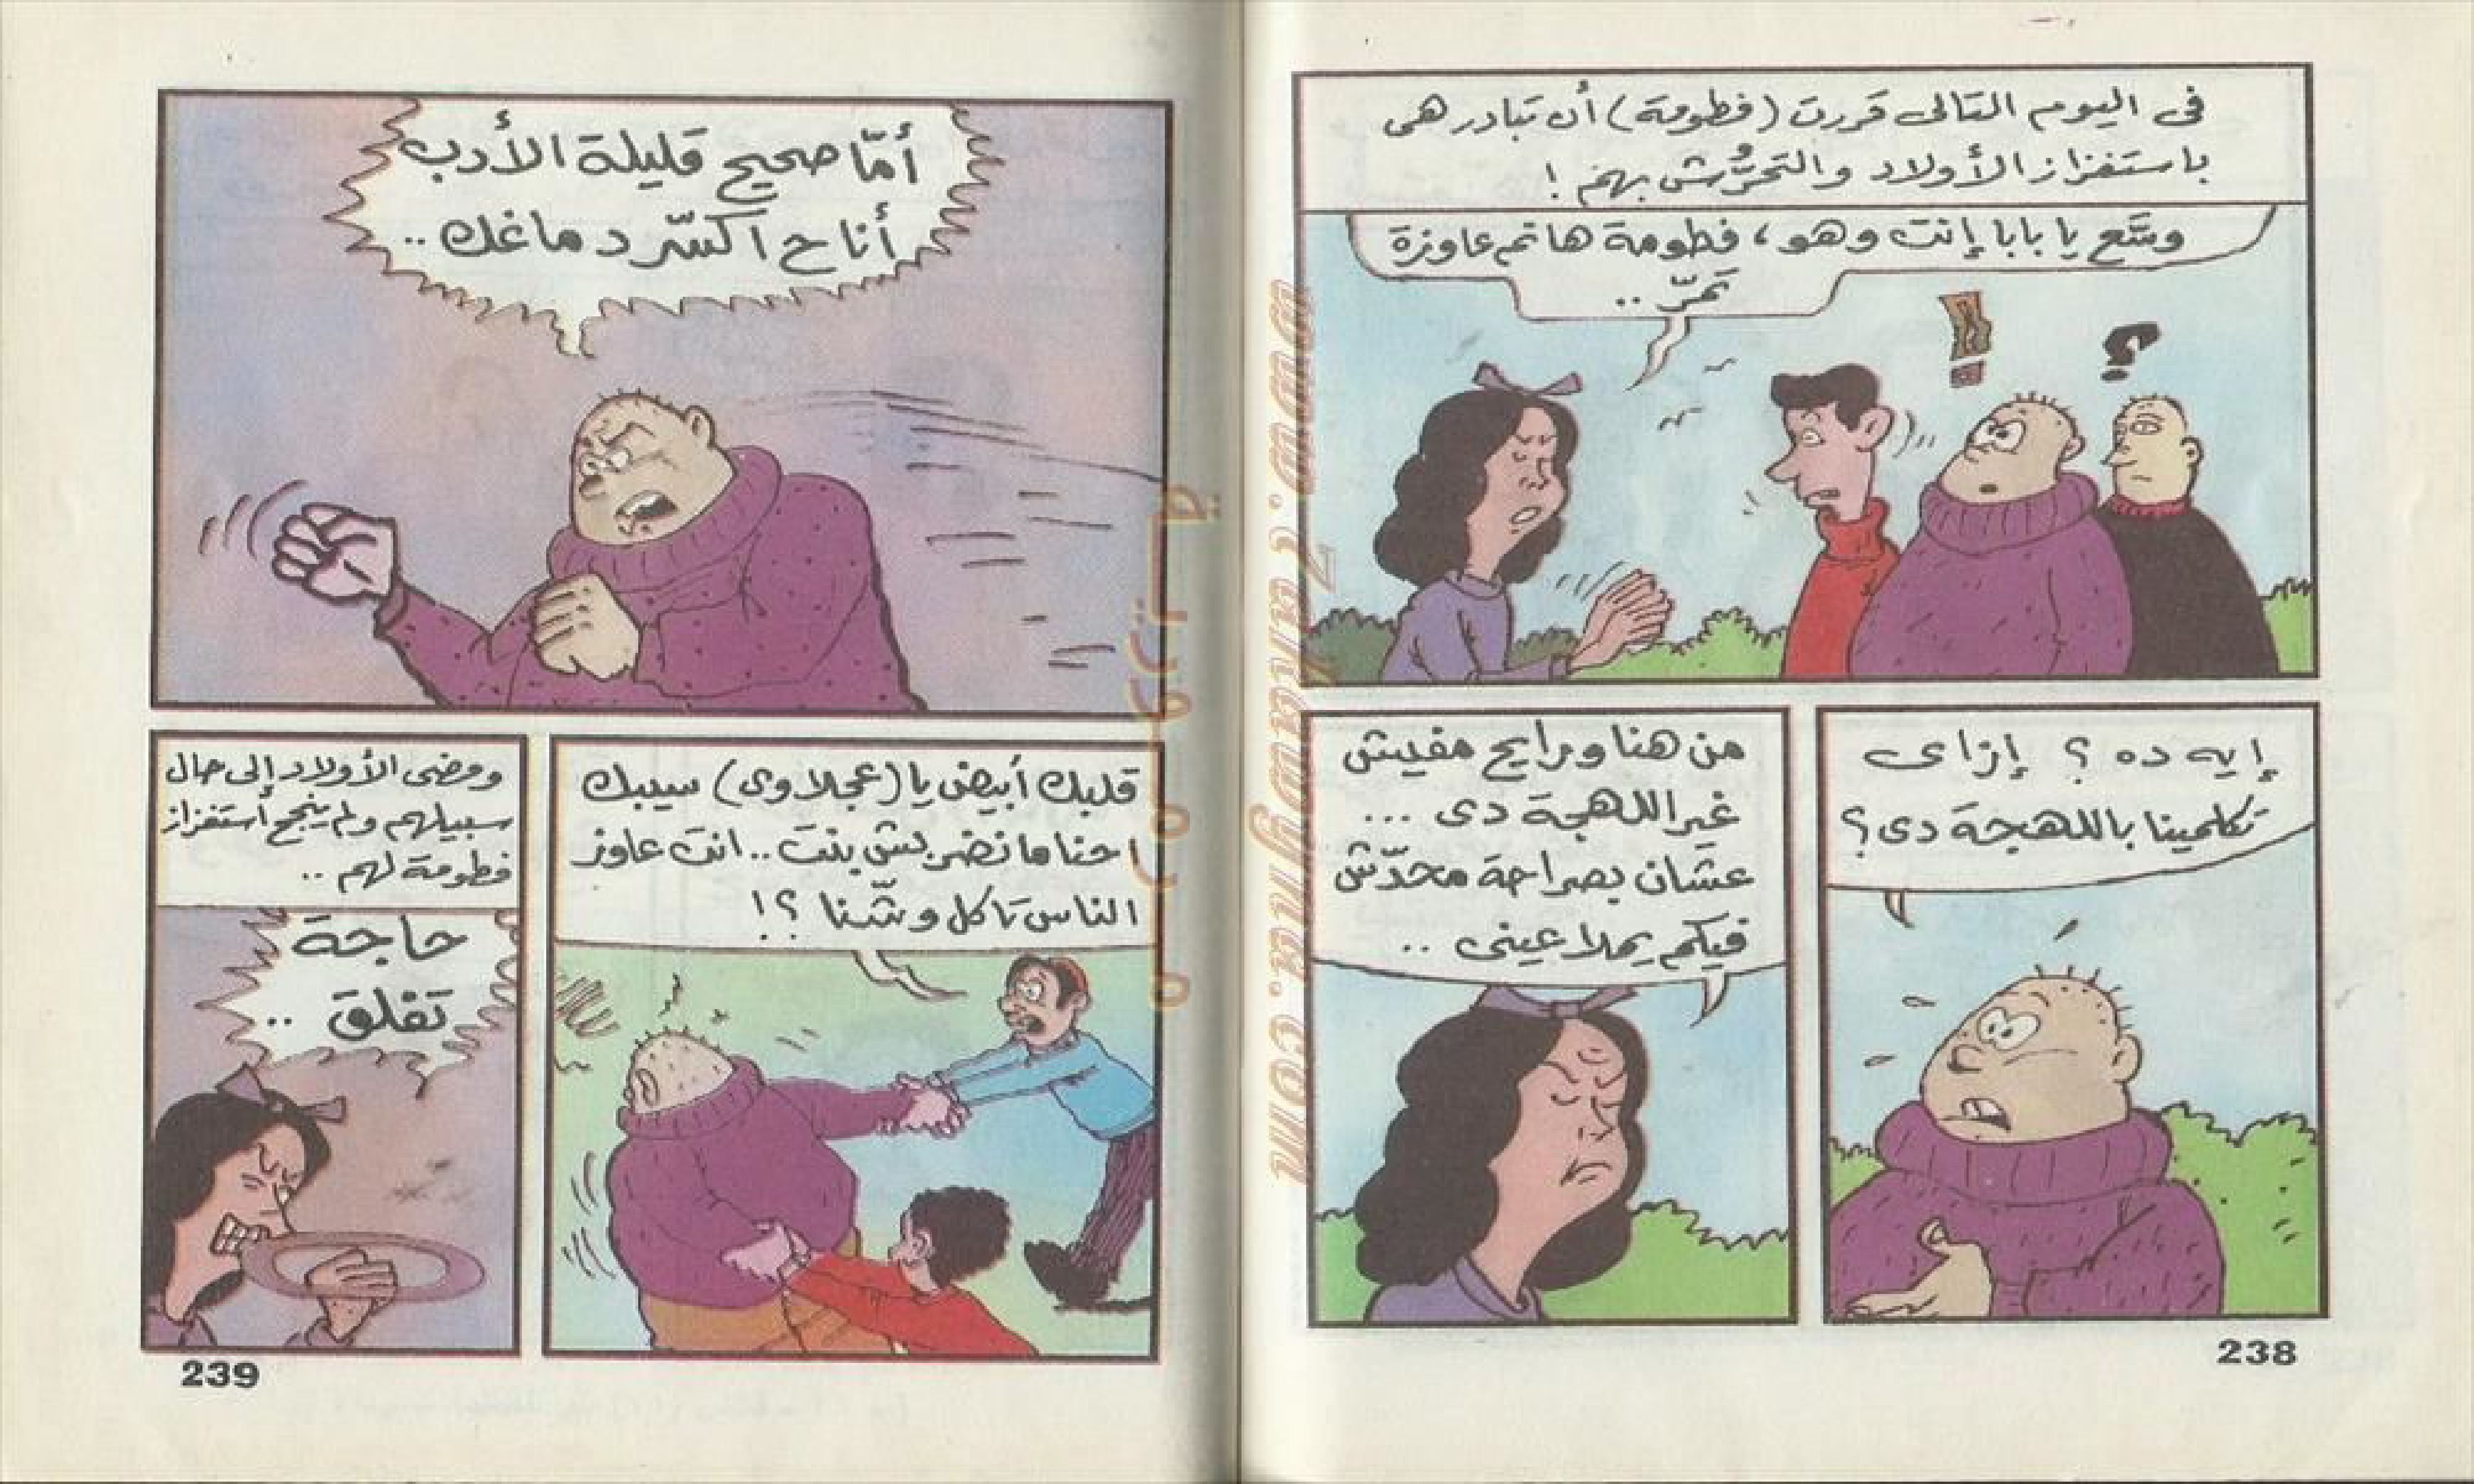 فى اليوم التالى قررت (فطومة) أن تبادر هى
باستفزاز الأولاد والتحرُّش بهم !
وسَّع يا بابا إنت وهو، فطومة هانم عاوزة
تمرّ ..
إيه ده ؟ إزاى
تكلمينا باللهجة دى؟
من هنا ورايح مفيش
غير اللهجة دى ...
عشان بصراحة محدّش
فيكم يملا عينى ..
238
أمّا صحيح قليلة الأدب
أنا ح اكسّر دماغك ..
قلبك أبيض يا (عجلاوى) سيبك
احنا ما نضربش بنت .. انت عاوز
الناس تاكل وشّنا ؟!
ومضى الأولاد إلى حال
سبيلهم ولم ينجح استفزاز
فطومة لهم ..
حاجة
تفلق ..
239